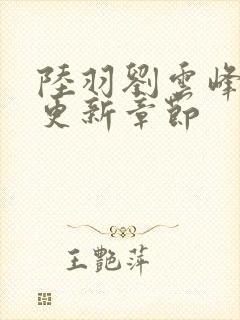 陸羽劉雲峰
更新章節
王艷萍